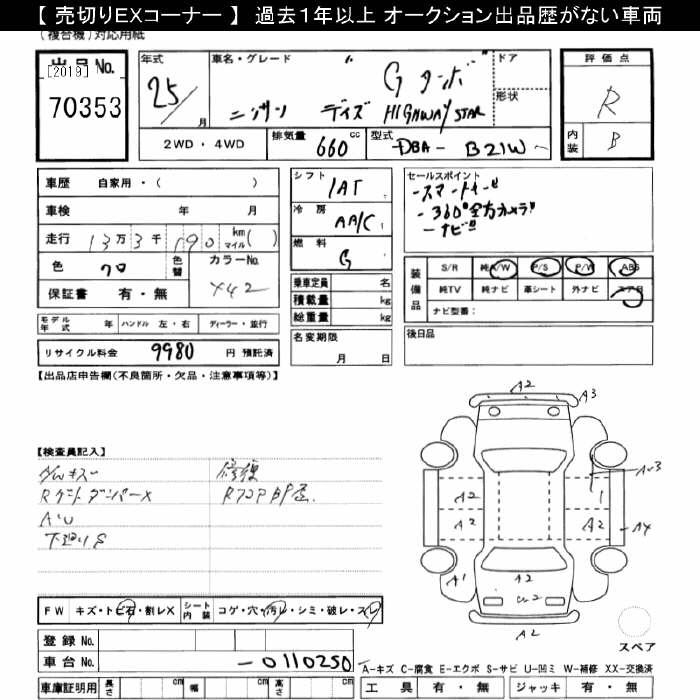 【 売切りEXコーナー 】 過去1年以上 オークション出品歴がない車両
(複合機)対応用紙
出品No.
[2019]
70353
年式
25/
月
車名・グレード
G ターボ
ニッサン デイズ HIGHWAY STAR
ドア
形状
評価点
R
内装
B
2WD ・ 4WD
排気量
660
cc
型式
DBA- B21W
車歴 自家用・( )
車検 年 月
走行 13万3千190 km マイル( )
色 クロ
色替
カラーNo.
X42
保証書 有・無
シフト
IAT
冷房
AA/C
燃料
G
乗車定員 名
積載量 kg
総重量 kg
セールスポイント
-スマートキー
-360°全方カメラ
-ナビ
装備品
S/R 純A/W P/S P/W ABS
純TV 純ナビ 革シート 外ナビ エアB
ナビ型番:
モデル年式 年 ハンドル 左・右 ディーラー・並行
リサイクル料金 9980 円 預託済
名変期限
月 日
後日品
【出品店申告欄(不良箇所・欠品・注意事項等)】
【検査員記入】
修復
Rゲートダンパー×
AU
下廻りS
A2
A3
A2
A2
A2
A4
A1
A2
A2
FW キズ・トビ石・割レX
シート内装
コゲ・穴・汚レ・シミ・破レ・スレ
登録 No.
車台 No.
-0110250
スペア
A-キズ C-腐食 E-エクボ S-サビ U-凹ミ W-補修 XX-交換済
車庫証明用 長さ cm 幅 cm 高さ cm
工具 有・無 ジャッキ 有・無